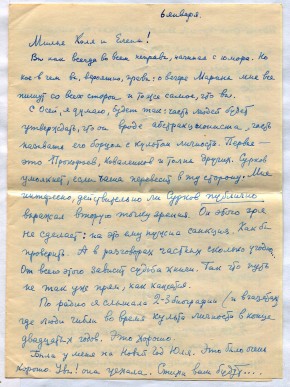 6 января.
Милые Коля и Елена!
Вы как всегда во всем неправы, начиная с юмора. Но
кое в чем вы, вероятно, правы: о вечере Марана мне все
пишут со всех сторон и тоже самое, что вы.
С Осей, я думаю, будет так: часть людей будет
утверждать, что он вроде абстракциониста, часть
назовет его борцом с культом личности. Первые —
это Прокофьев, Коваленков и толпа других. Сурков
умолкнет, если чаша перевесит в ту сторону. Мне
интересно, действительно ли Сурков публично
выражал вторую точку зрения. Он этого зря
не сделает: на это ему нужна санкция. Как бы
проверить. А в разговорах частных сколько угодно.
От всего этого зависит судьба книги. Так что путь
не так уж прям, как кажется.
По радио я слышала 2-3 биографии
где люди гибли во время культа личности в конце
двадцатых годов. Это хорошо.
Была у меня на Новый год Юля. Это было очень
хорошо. Увы! она уехала. Стихи вам будут...